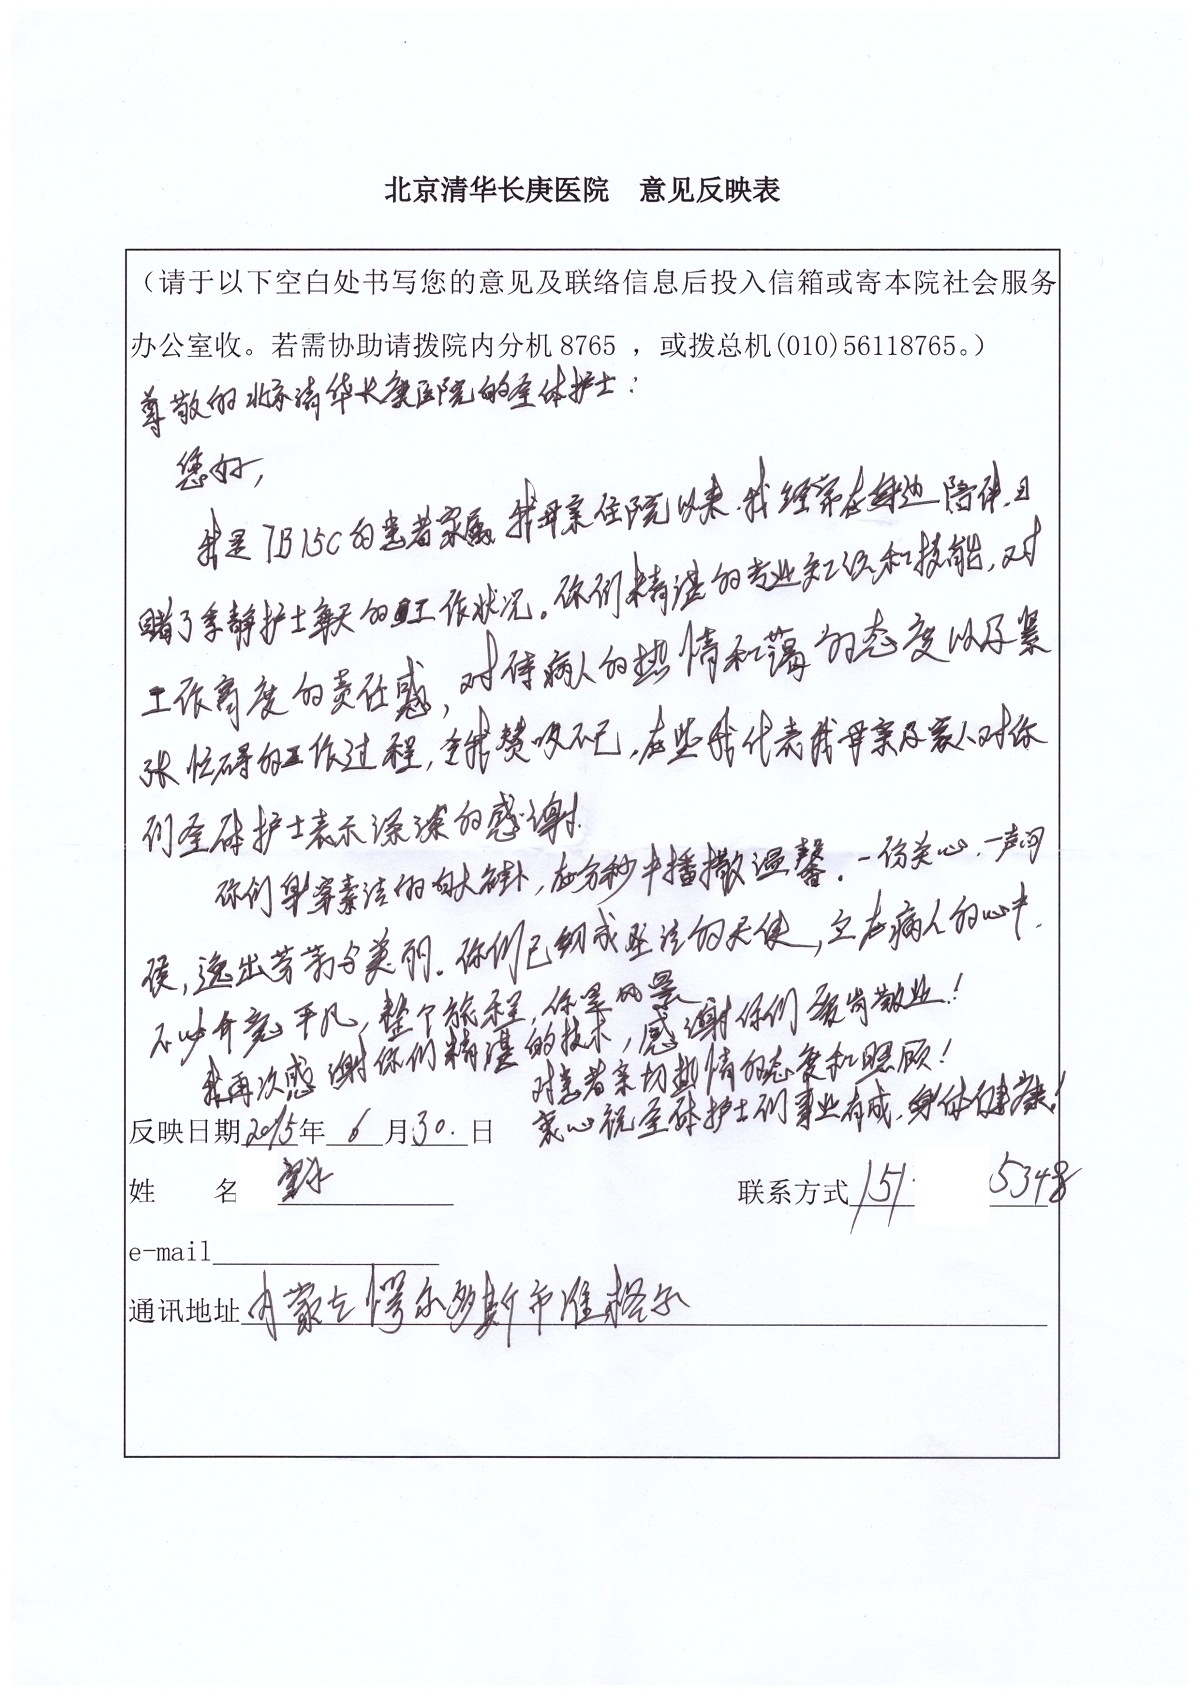 北京清华长庚医院 意见反映表
（请于以下空白处书写您的意见及联络信息后投入信箱或寄本院社会服务
办公室收。若需协助请拨院内分机8765 ，或拨总机(010)56118765。）
尊敬的北京清华长庚医院的全体护士：
您好，
我是7B15C的患者家属，我母亲住院以来，我经常在身边陪伴，目
睹了李静护士每天的工作状况。你们精湛的专业知识和技能，对
工作高度的责任感，对待病人的热情和蔼的态度以及紧
张忙碌的工作过程，令我赞叹不已，在此我代表我母亲及家人对你
们全体护士表示深深的感谢。
你们身穿素洁的白大褂，在分秒中播撒温馨。一份关心，一声问
候，逸出芳菲与美丽。你们已翱成圣洁的天使，立在病人的心中，
不必介意平凡，整个旅程，你是风景
我再次感谢你们精湛的技术，感谢你们爱岗敬业！
对患者亲切热情的态度和照顾！
衷心祝全体护士们事业有成，身体健康！
反映日期2015年 6 月30.日
姓 名
联系方式 151 5348
e-mail
通讯地址 内蒙古愕尔多斯市准格尔